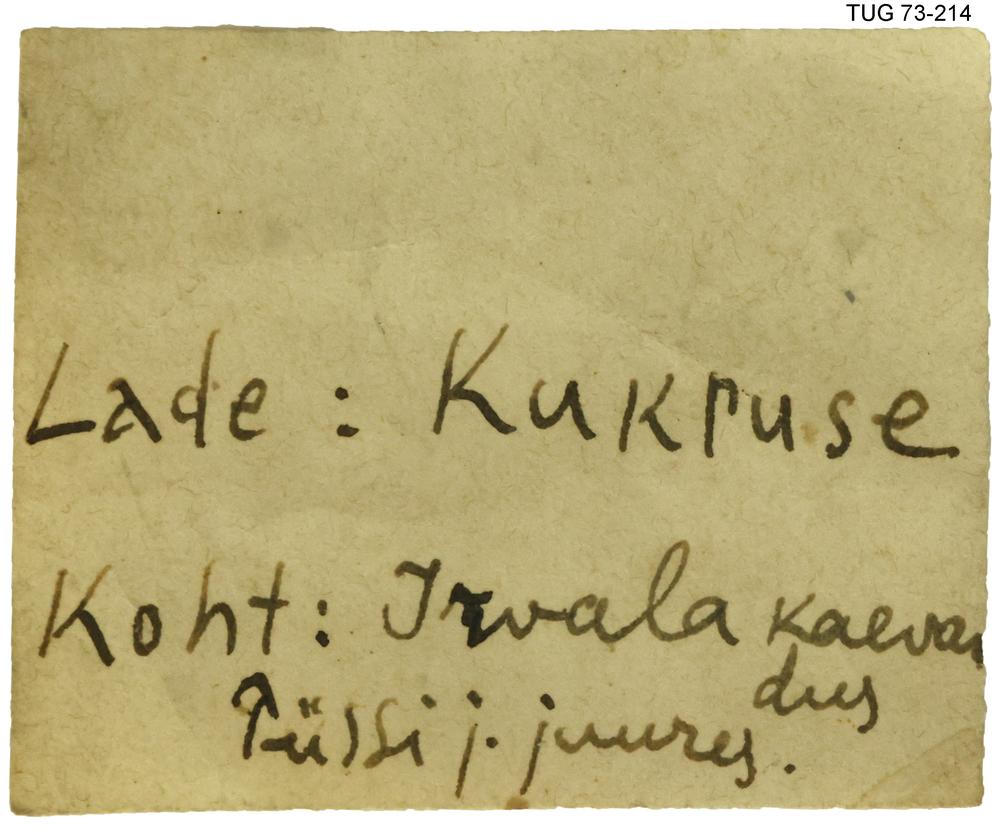 TUG 73-214
Lade: Kukruse
Koht: Irvala kaevan
dus
Püssi j. juures.